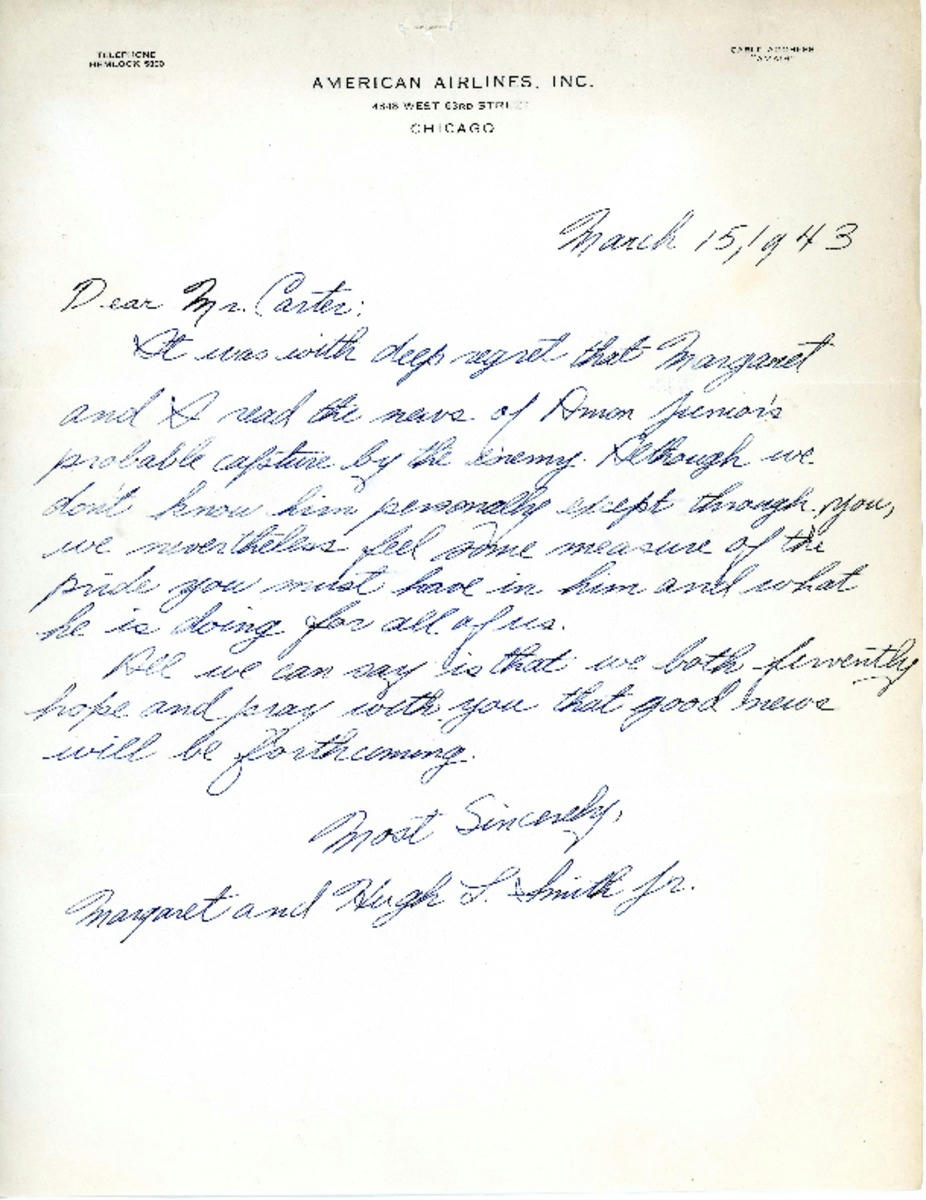 TELEPHONE
HEMLOCK
CABLE ADDRESS
AMERICAN AIRLINES, INC.
WEST 63RD STREET
CHICAGO
March 15, 1943
Dear Mr. Carter:
It was with deep regret that Margaret
and I read the news of Amon Junior's
probable capture by the enemy. Although we
don't know him personally except through you,
we nevertheless feel some measure of the
pride you must have in him and what
he is doing for all of us.
All we can say is that we both fervently
hope and pray with you that good news
will be forthcoming.
Most Sincerely,
Margaret and Hugh L. Smith Jr.